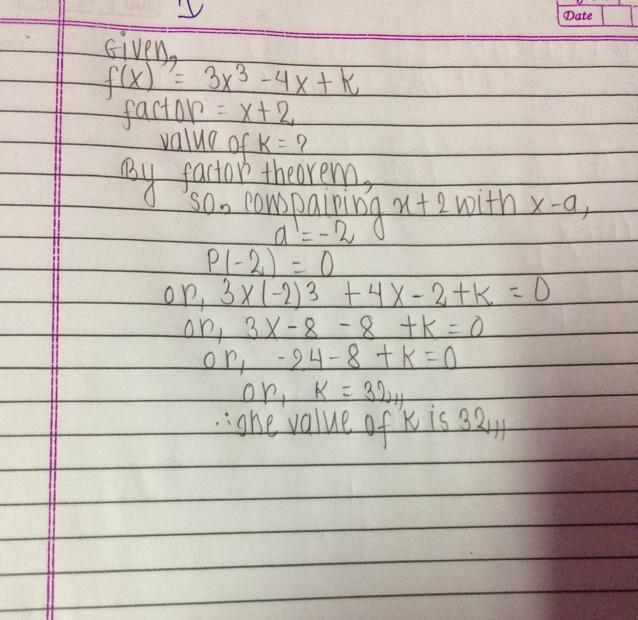 Date
Given,
f(x) = 3x³ - 4x + k
factor = x+2
value of k = ?
By factor theorem,
so, compairing x+2 with x-a,
a = -2
P(-2) = 0
or, 3x(-2)3 + 4x - 2 + k = 0
or, 3x - 8 - 8 + k = 0
or, -24 - 8 + k = 0
or, k = 32,,,
∴ the value of k is 32,,,